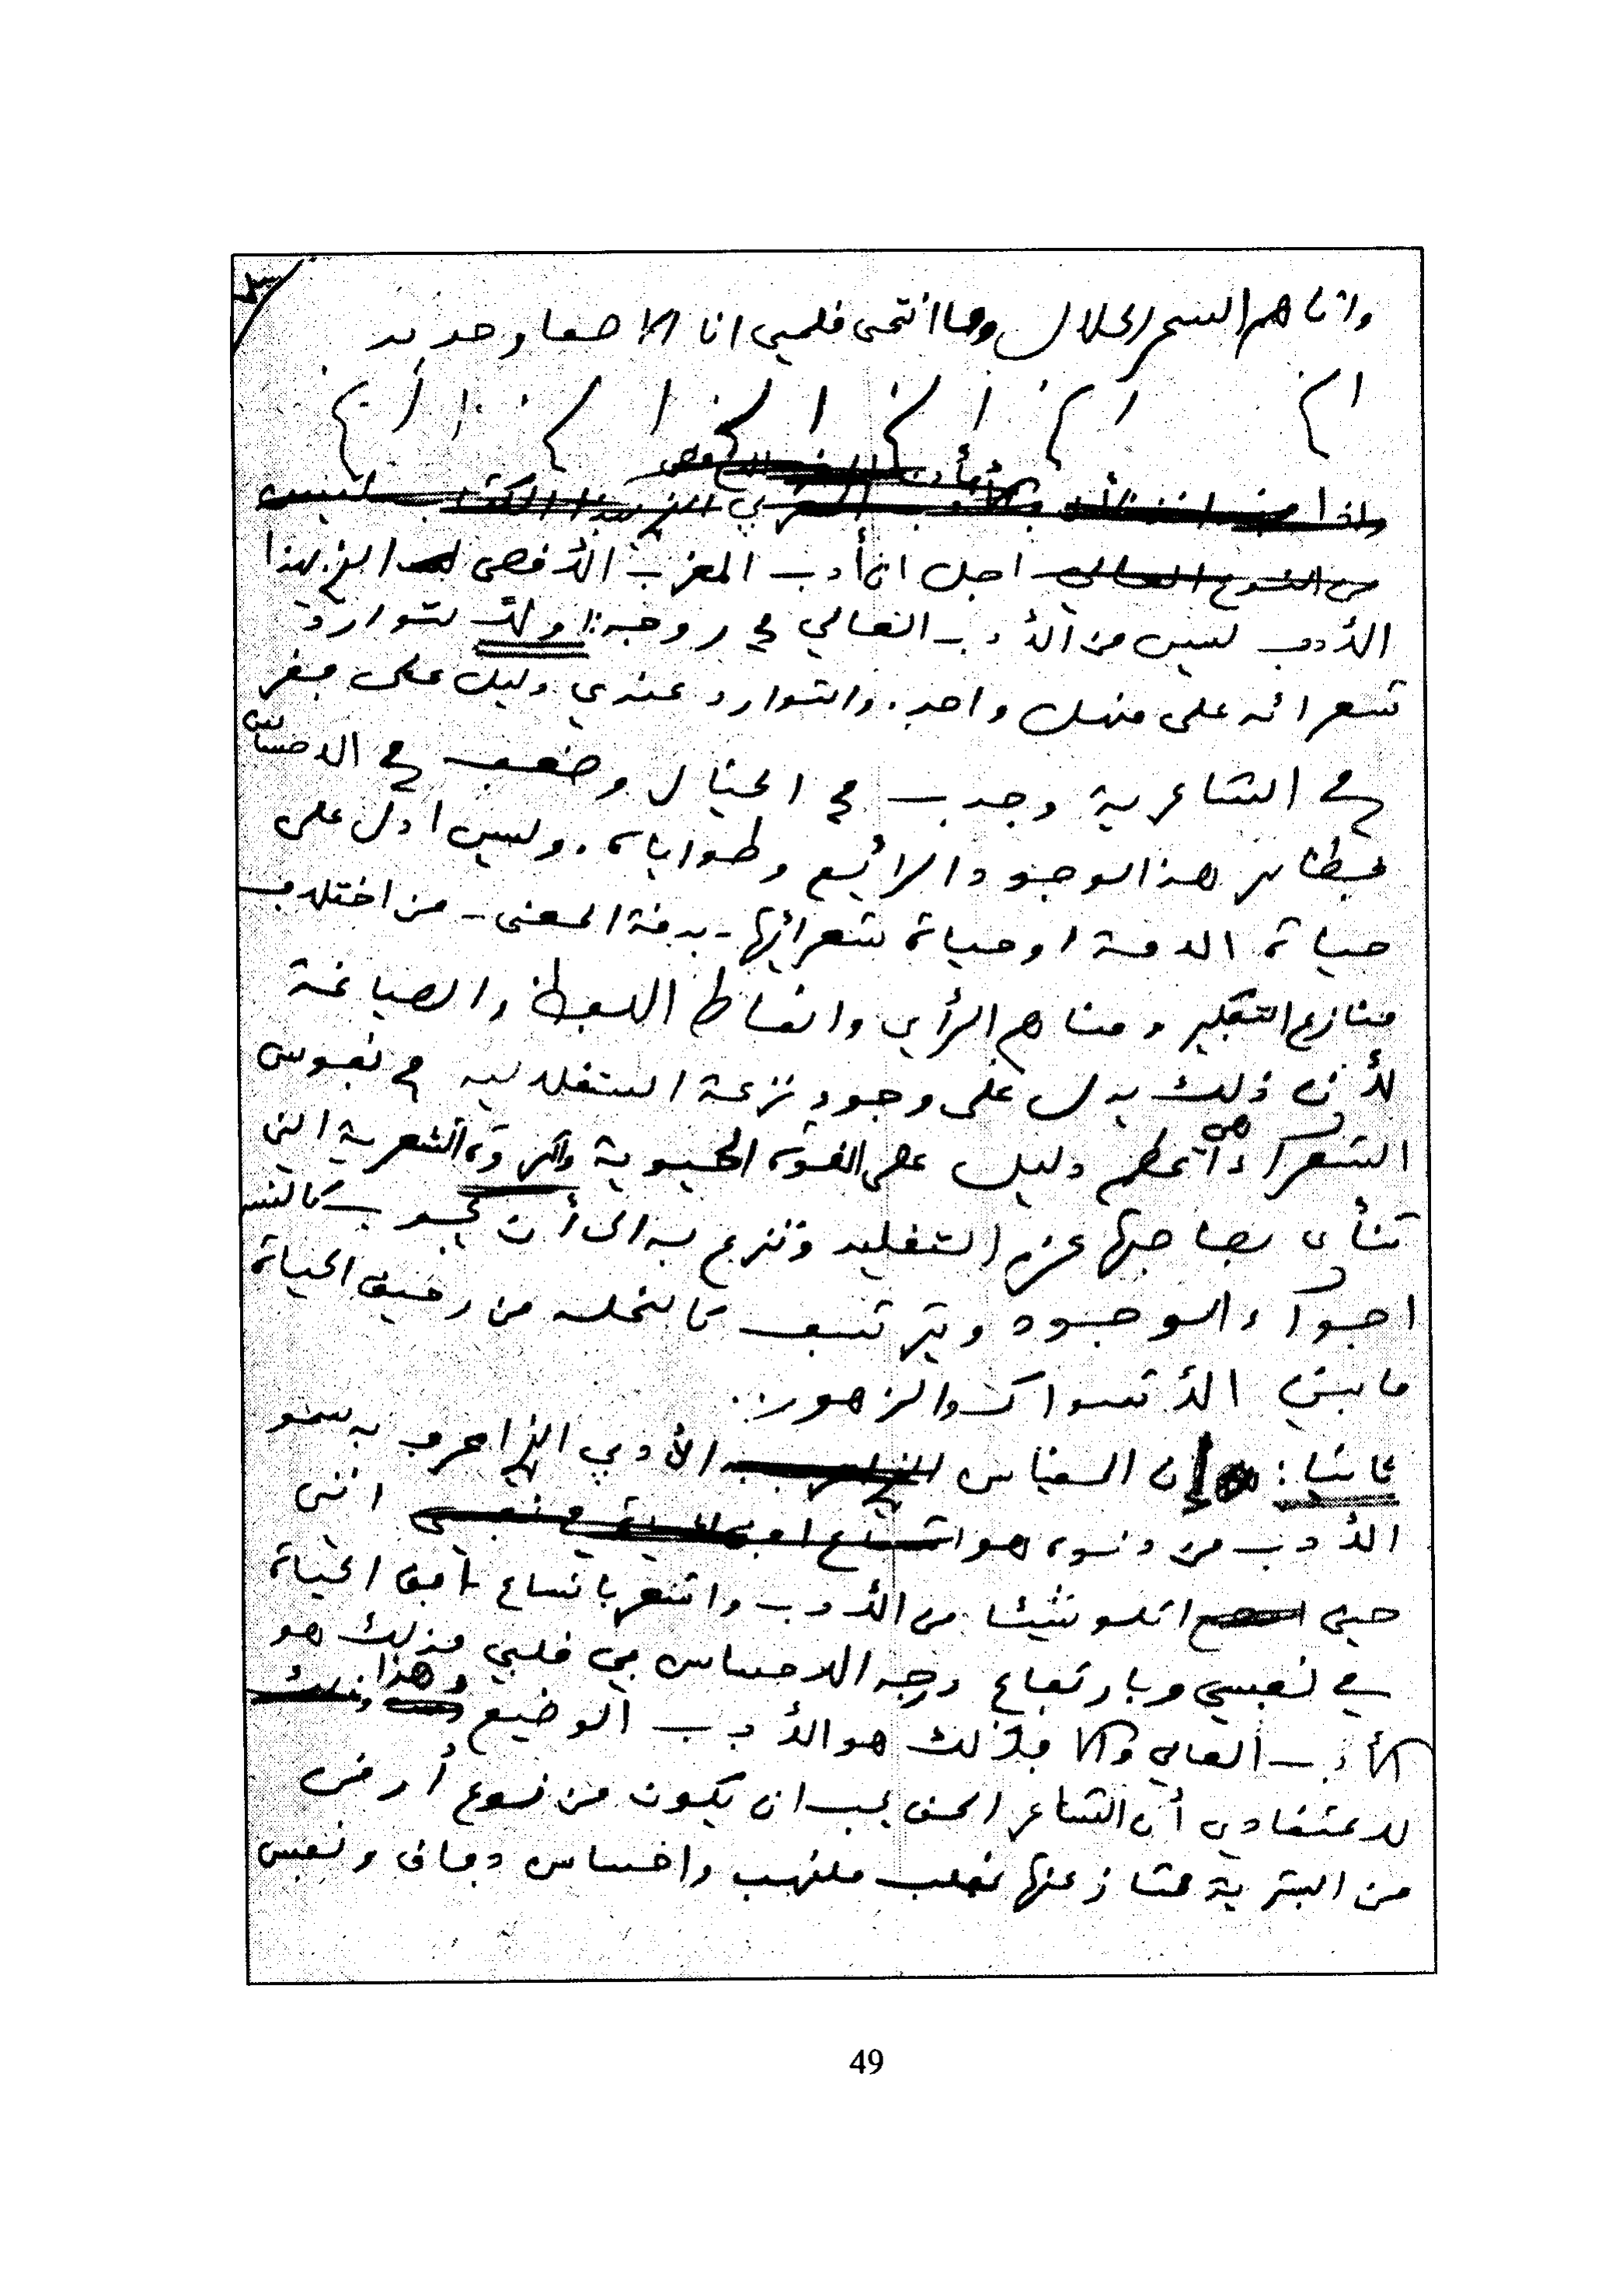 ٣
واتاهم السحر الحلال وما انتحى قلبي انا الا صفا وحديد
الخ الخ الخ الخ الخ الخ
اجل ان أدب المغرب الأقصى الخ بهذا
الأدب ليس من الأدب العالي في روحه: اولا لتوارد
شعرائه على منهل واحد. والتوارد عندي دليل على فقر
في الشاعرية وجدب في الخيال وضعف في الاحساس
بمظاهر هذا الوجود الرائع وطواياه. وليس ادل على
حياة الامة او حياة شعرائها - بدقة المعنى - من اختلاف
منازع التفكير ومناهج الرأي وانماط اللفظ والصياغة
لأن ذلك يدل على وجود نزعة استقلالية في نفوس
الشعراء هي أعظم دليل على القوة الحيوية والثروة الشعرية التي
تنأى بصاحبها عن التقليد وتنزع به الى أن يجوب كالنسر
اجواء الوجود ويترشف كالنحلة من رحيق الحياة
ما بين الأشواك والزهور..
ثانيا: إن القياس الأدبي الذي اعرف به سمو
الأدب من دنوه هو انني
حين اتلو شيئا من الأدب واشعر باتساع افق الحياة
في نفسي وبارتفاع درجة الاحساس في قلبي فذلك هو
الأدب العالي والا فذلك هو الأدب الوضيع وهذا
لاعتقادي أن الشاعر الحق يجب ان يكون من نوع أرقى
من البشرية ممتاز عنها بقلب ملتهب واحساس دفاق ونفس
49